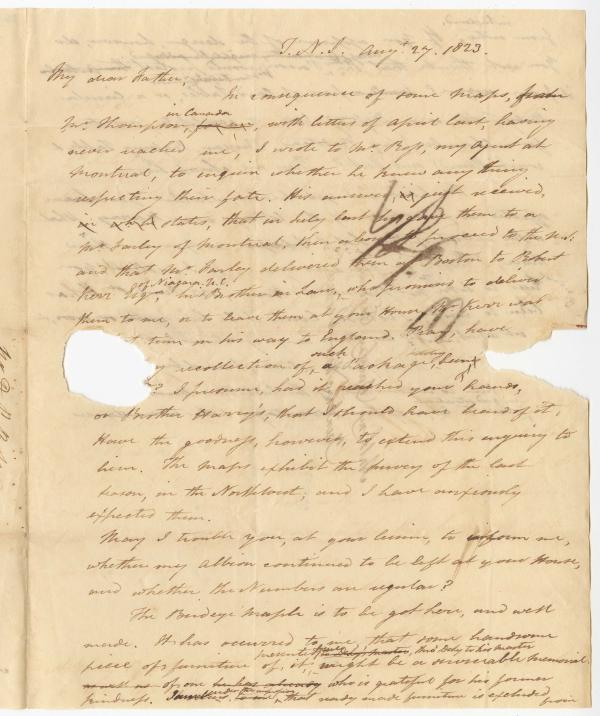 T. N. I. Augt 27. 1823.
My dear Father,
In consequence of some maps, from
in Canada
Mr. Thompson, with letters of April last, having
never reached me, I wrote to Mr. Ross, my Agent at
Montreal, to inquire whether he knew any thing
respecting their fate. His answer, just received,
states, that in July last he gave them to a
Mr. Farley of Montreal, then about to proceed to the
and that Mr. Farley delivered them at Boston to Robert
of Niagara U.C.
Kerr Esqr. his Brother in Law, who promised to deliver
them to me, or to leave them at your House. Mr. Kerr was
at time on his way to England. Pray, have
such
recollection of a Package,
? I presume, had it reached your hands,
or Brother Harry's, that I should have heard of it;
Have the goodness, however, to extend this enquiry to
him. The maps exhibit the survey of the last
season, in the Northwest; and I have anxiously
expected them.
May I trouble you, at your leisure, to inform me,
whether my Albion continued to be left at your House,
and whether the Numbers are regular?
The Birdeye Maple is to be got here, and well
made. It has occurred to me, that some handsome
presented
piece of furniture of it, might be a memorial
of one who is grateful for his former
kindness. that ready made furniture is excluded from